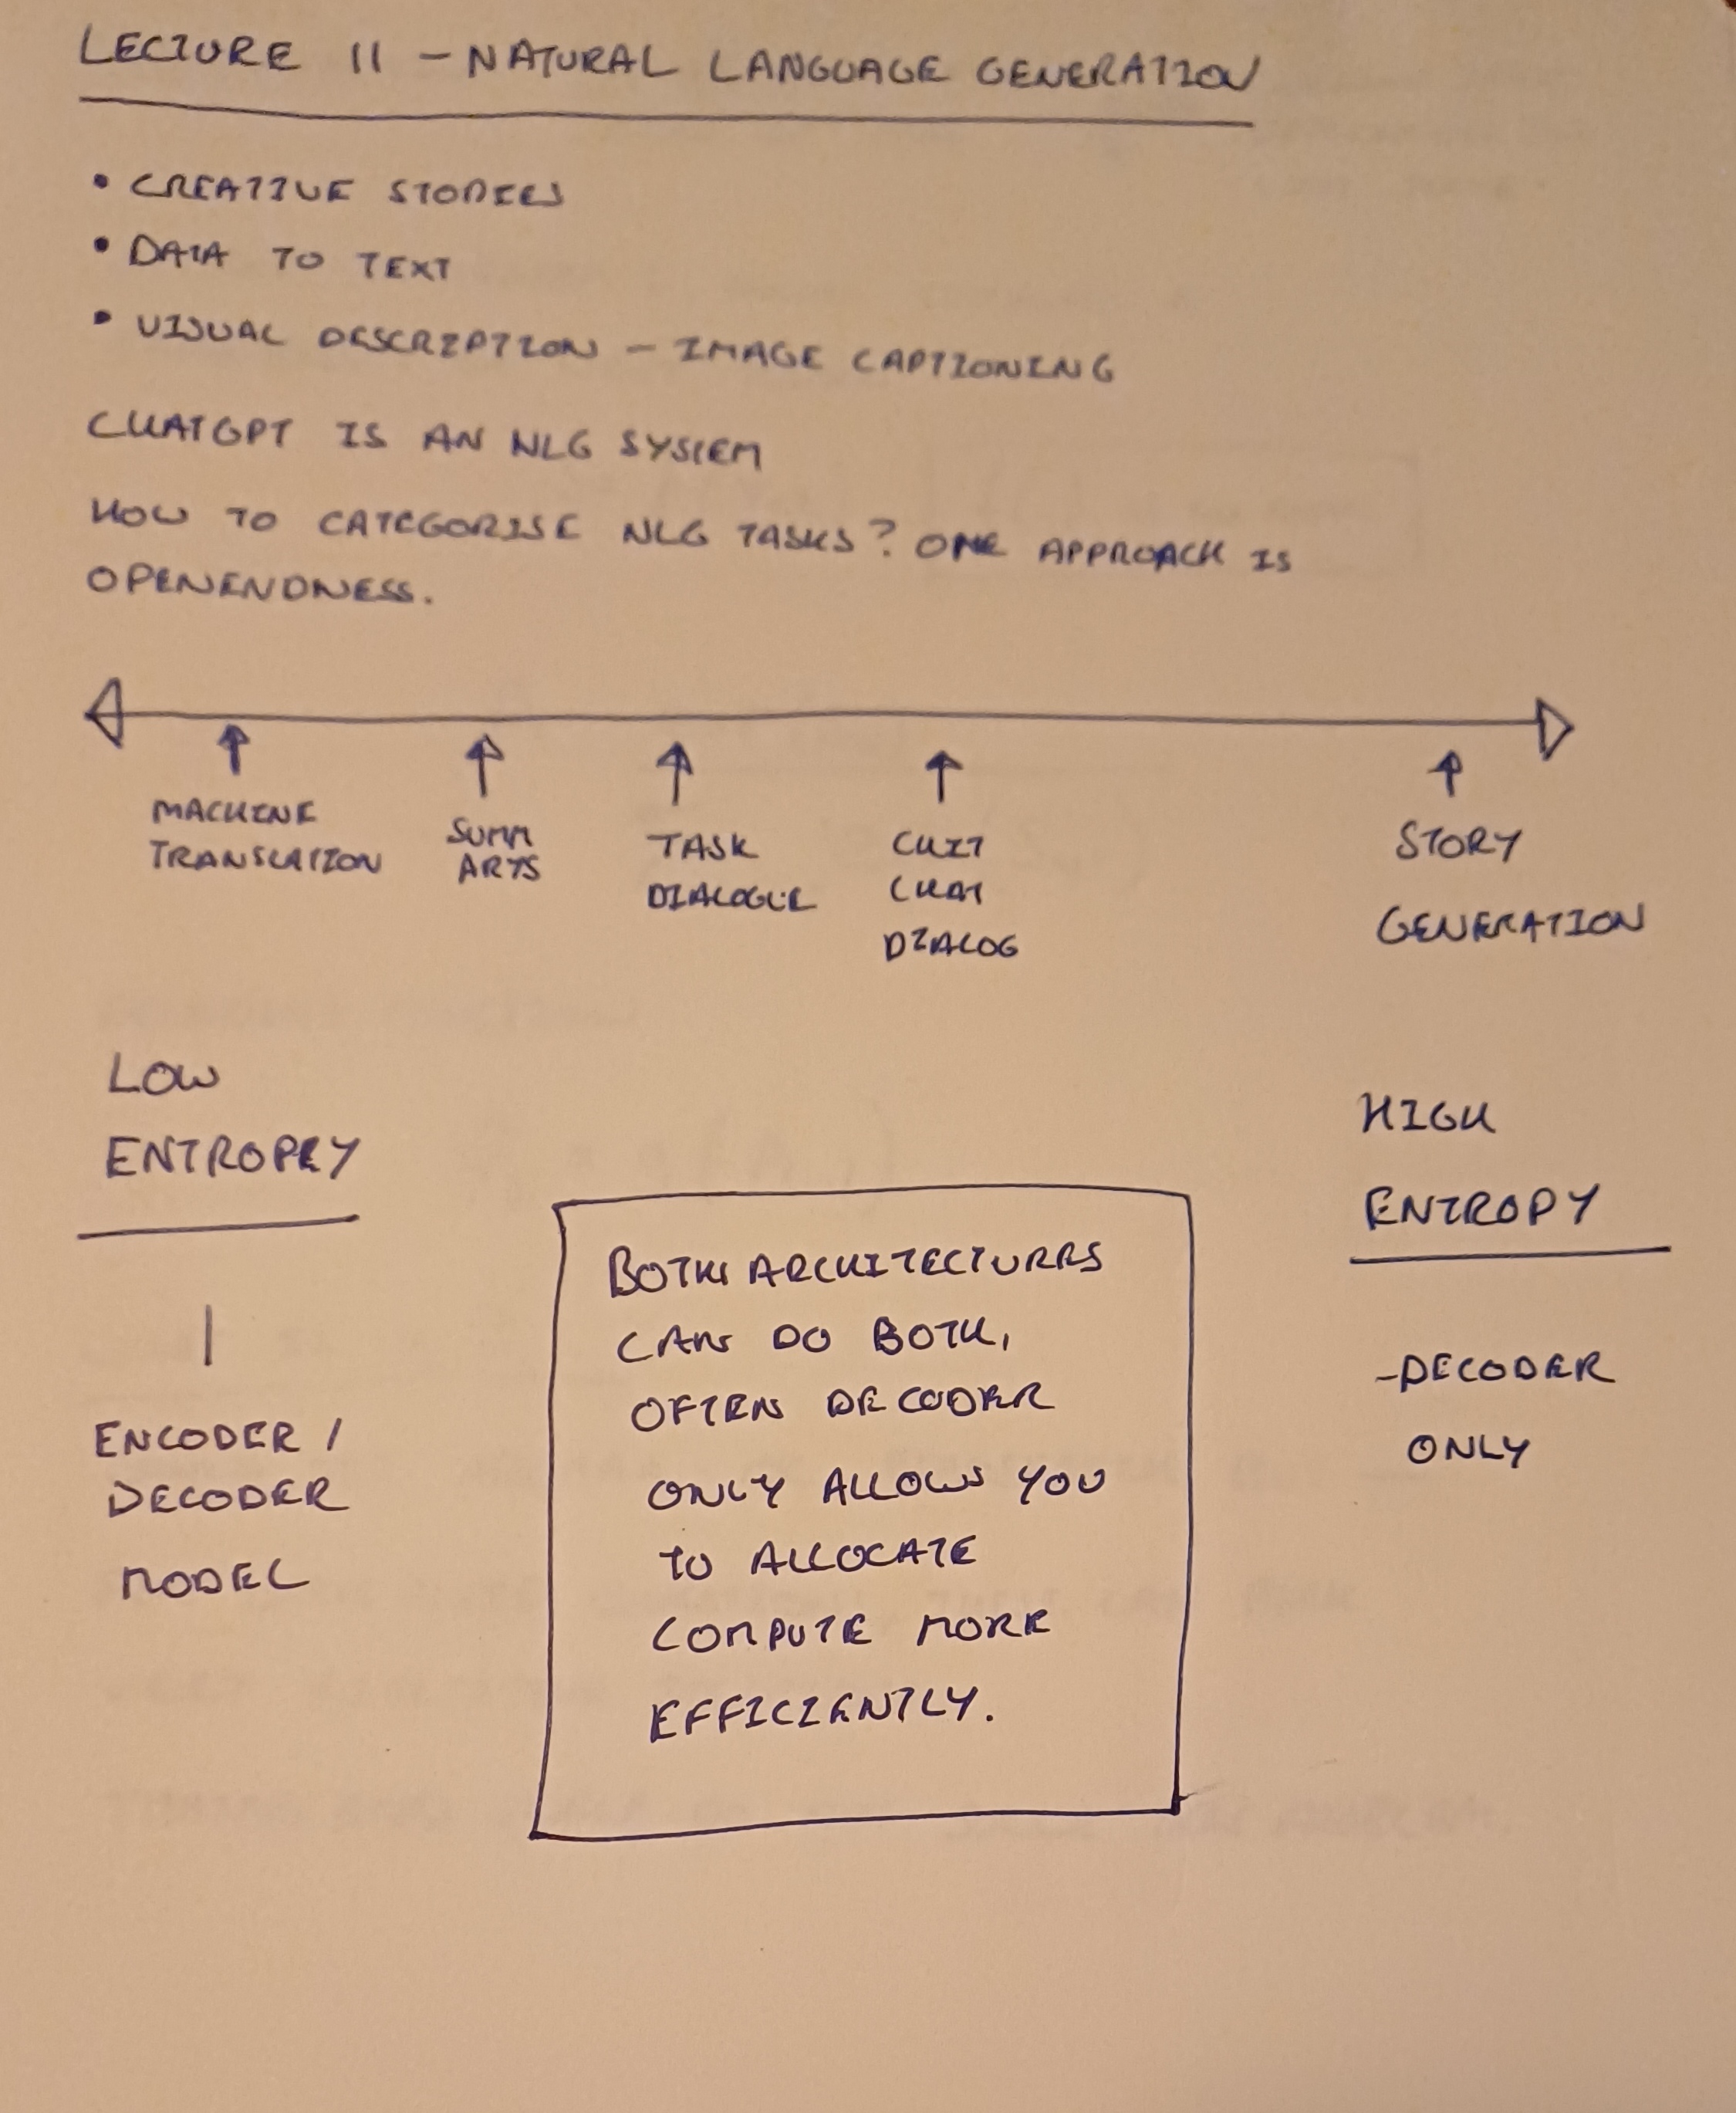 LECTURE 11 - NATURAL LANGUAGE GENERATION
• CREATIVE STORIES
• DATA TO TEXT
• VISUAL DESCRIPTION - IMAGE CAPTIONING
CHATGPT IS AN NLG SYSTEM
HOW TO CATEGORISE NLG TASKS? ONE APPROACH IS
OPENENDNESS.
MACHINE
TRANSLATION
SUMM
ARYS
TASK
DIALOGUE
CHIT
CHAT
DIALOG
STORY
GENERATION
LOW
ENTROPEY
HIGH
ENTROPY
ENCODER /
DECODER
MODEL
BOTH ARCHITECTURES
CAN DO BOTH,
OFTEN DECODER
ONLY ALLOWS YOU
TO ALLOCATE
COMPUTE MORE
EFFICIENTLY.
-DECODER
ONLY